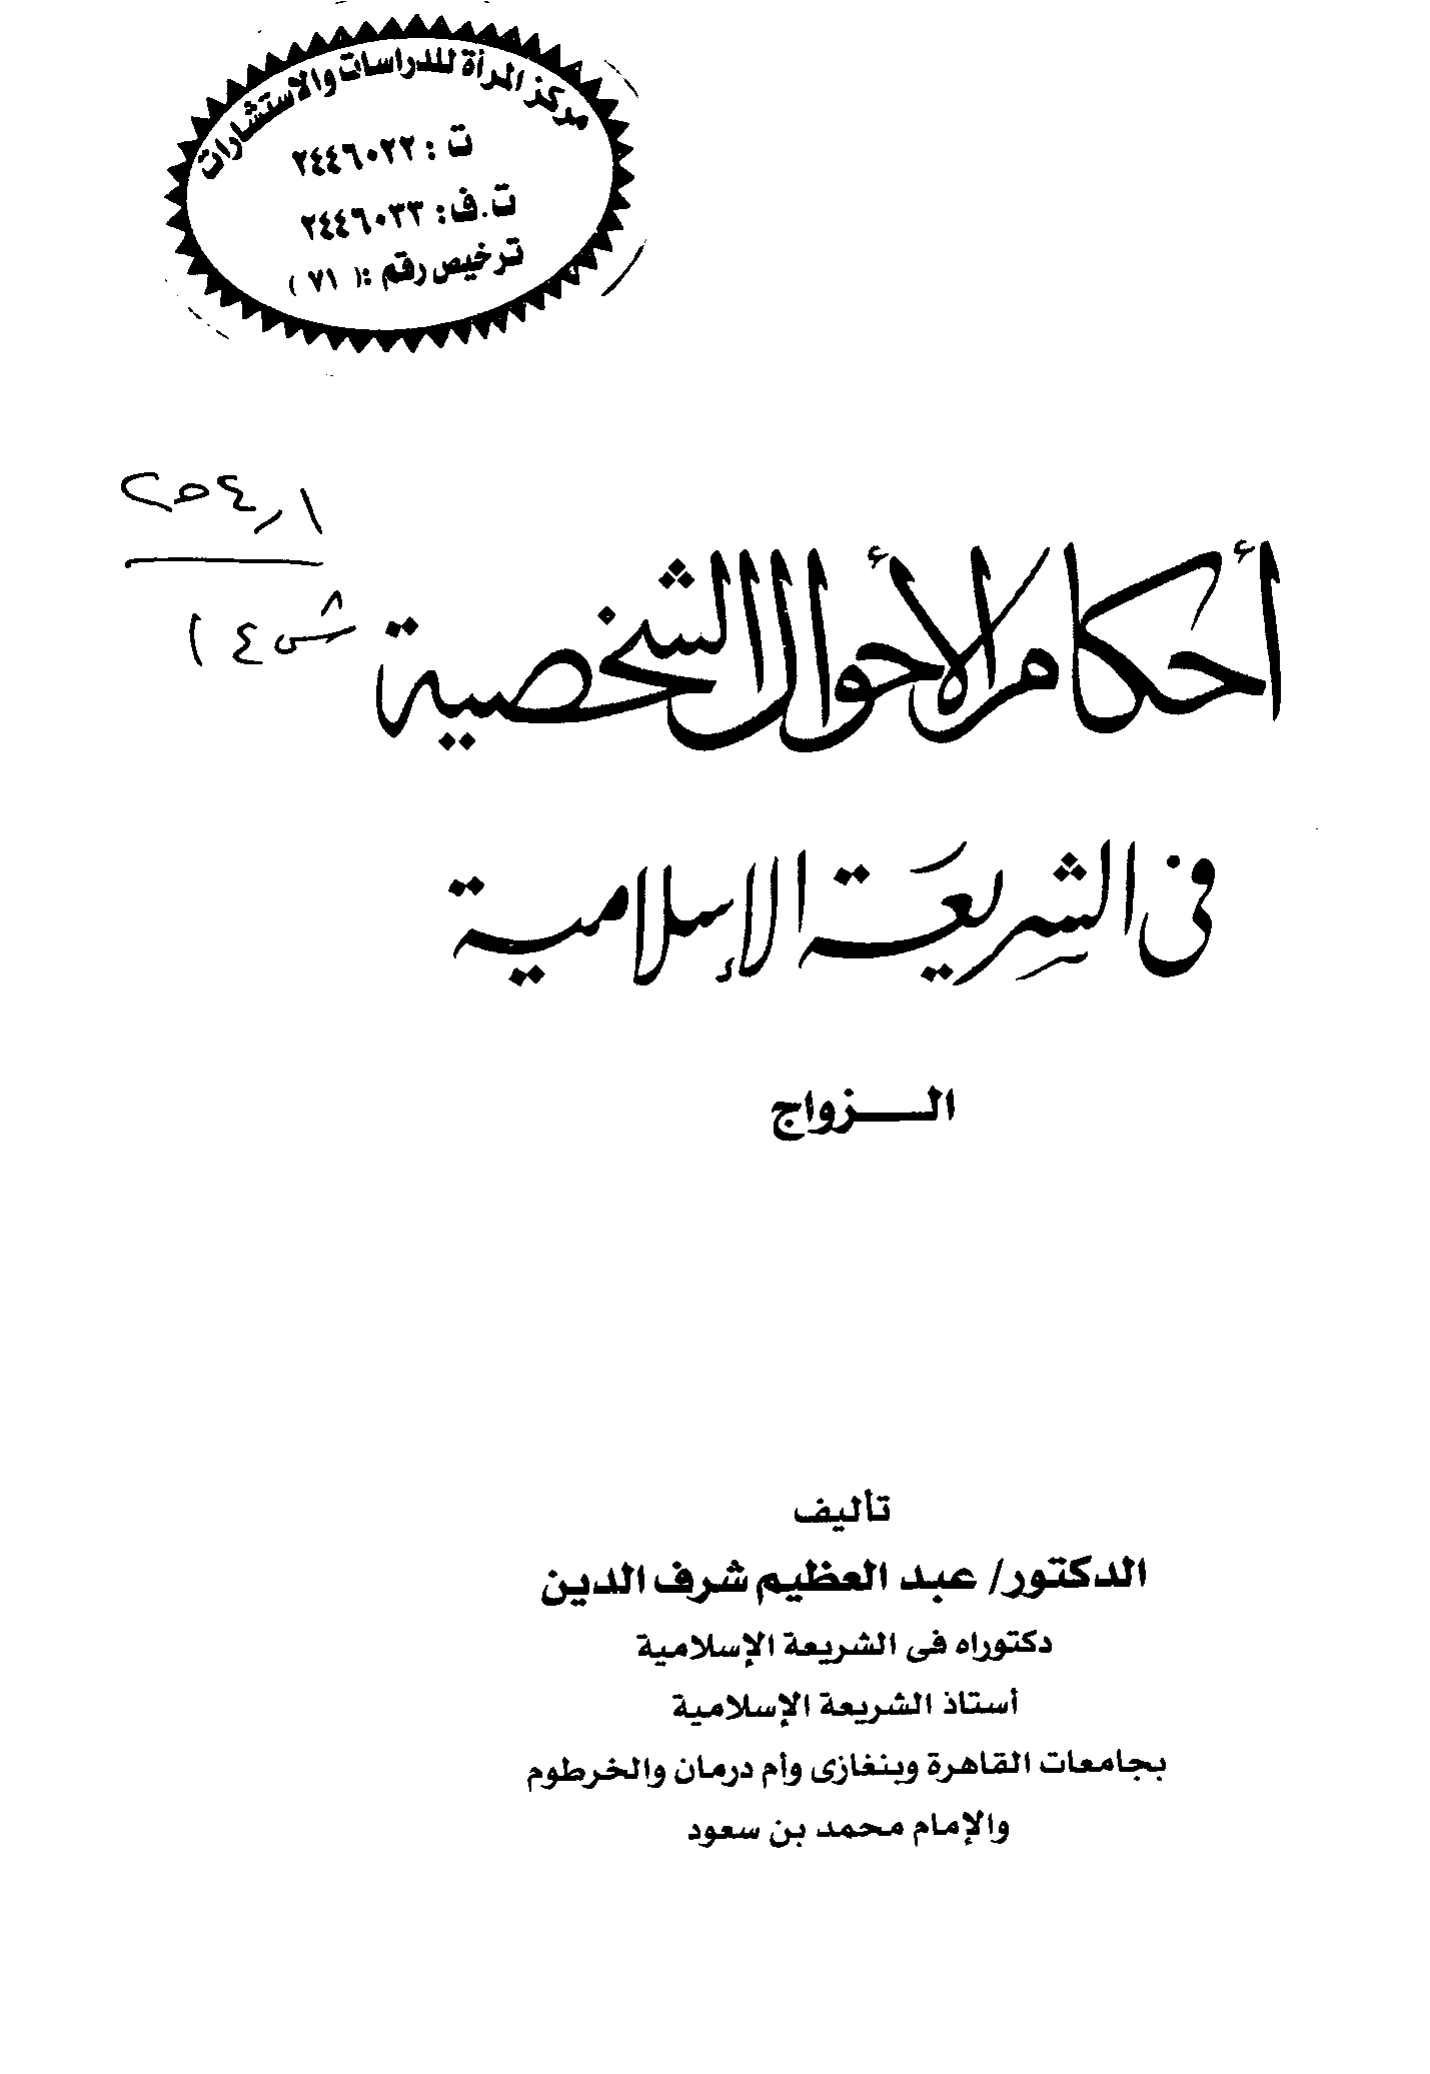 مركز المرأة للدراسات والاستشارات
ت : ٢٤٤٦٠٢٢
ت.ف: ٢٤٤٦٠٣٣
ترخيص رقم :( ٧١ )
أحكام الأحوال الشخصية
فى الشريعة الإسلامية
الـــزواج
تأليف
الدكتور/ عبد العظيم شرف الدين
دكتوراه فى الشريعة الإسلامية
أستاذ الشريعة الإسلامية
بجامعات القاهرة وبنغازى وأم درمان والخرطوم
والإمام محمد بن سعود